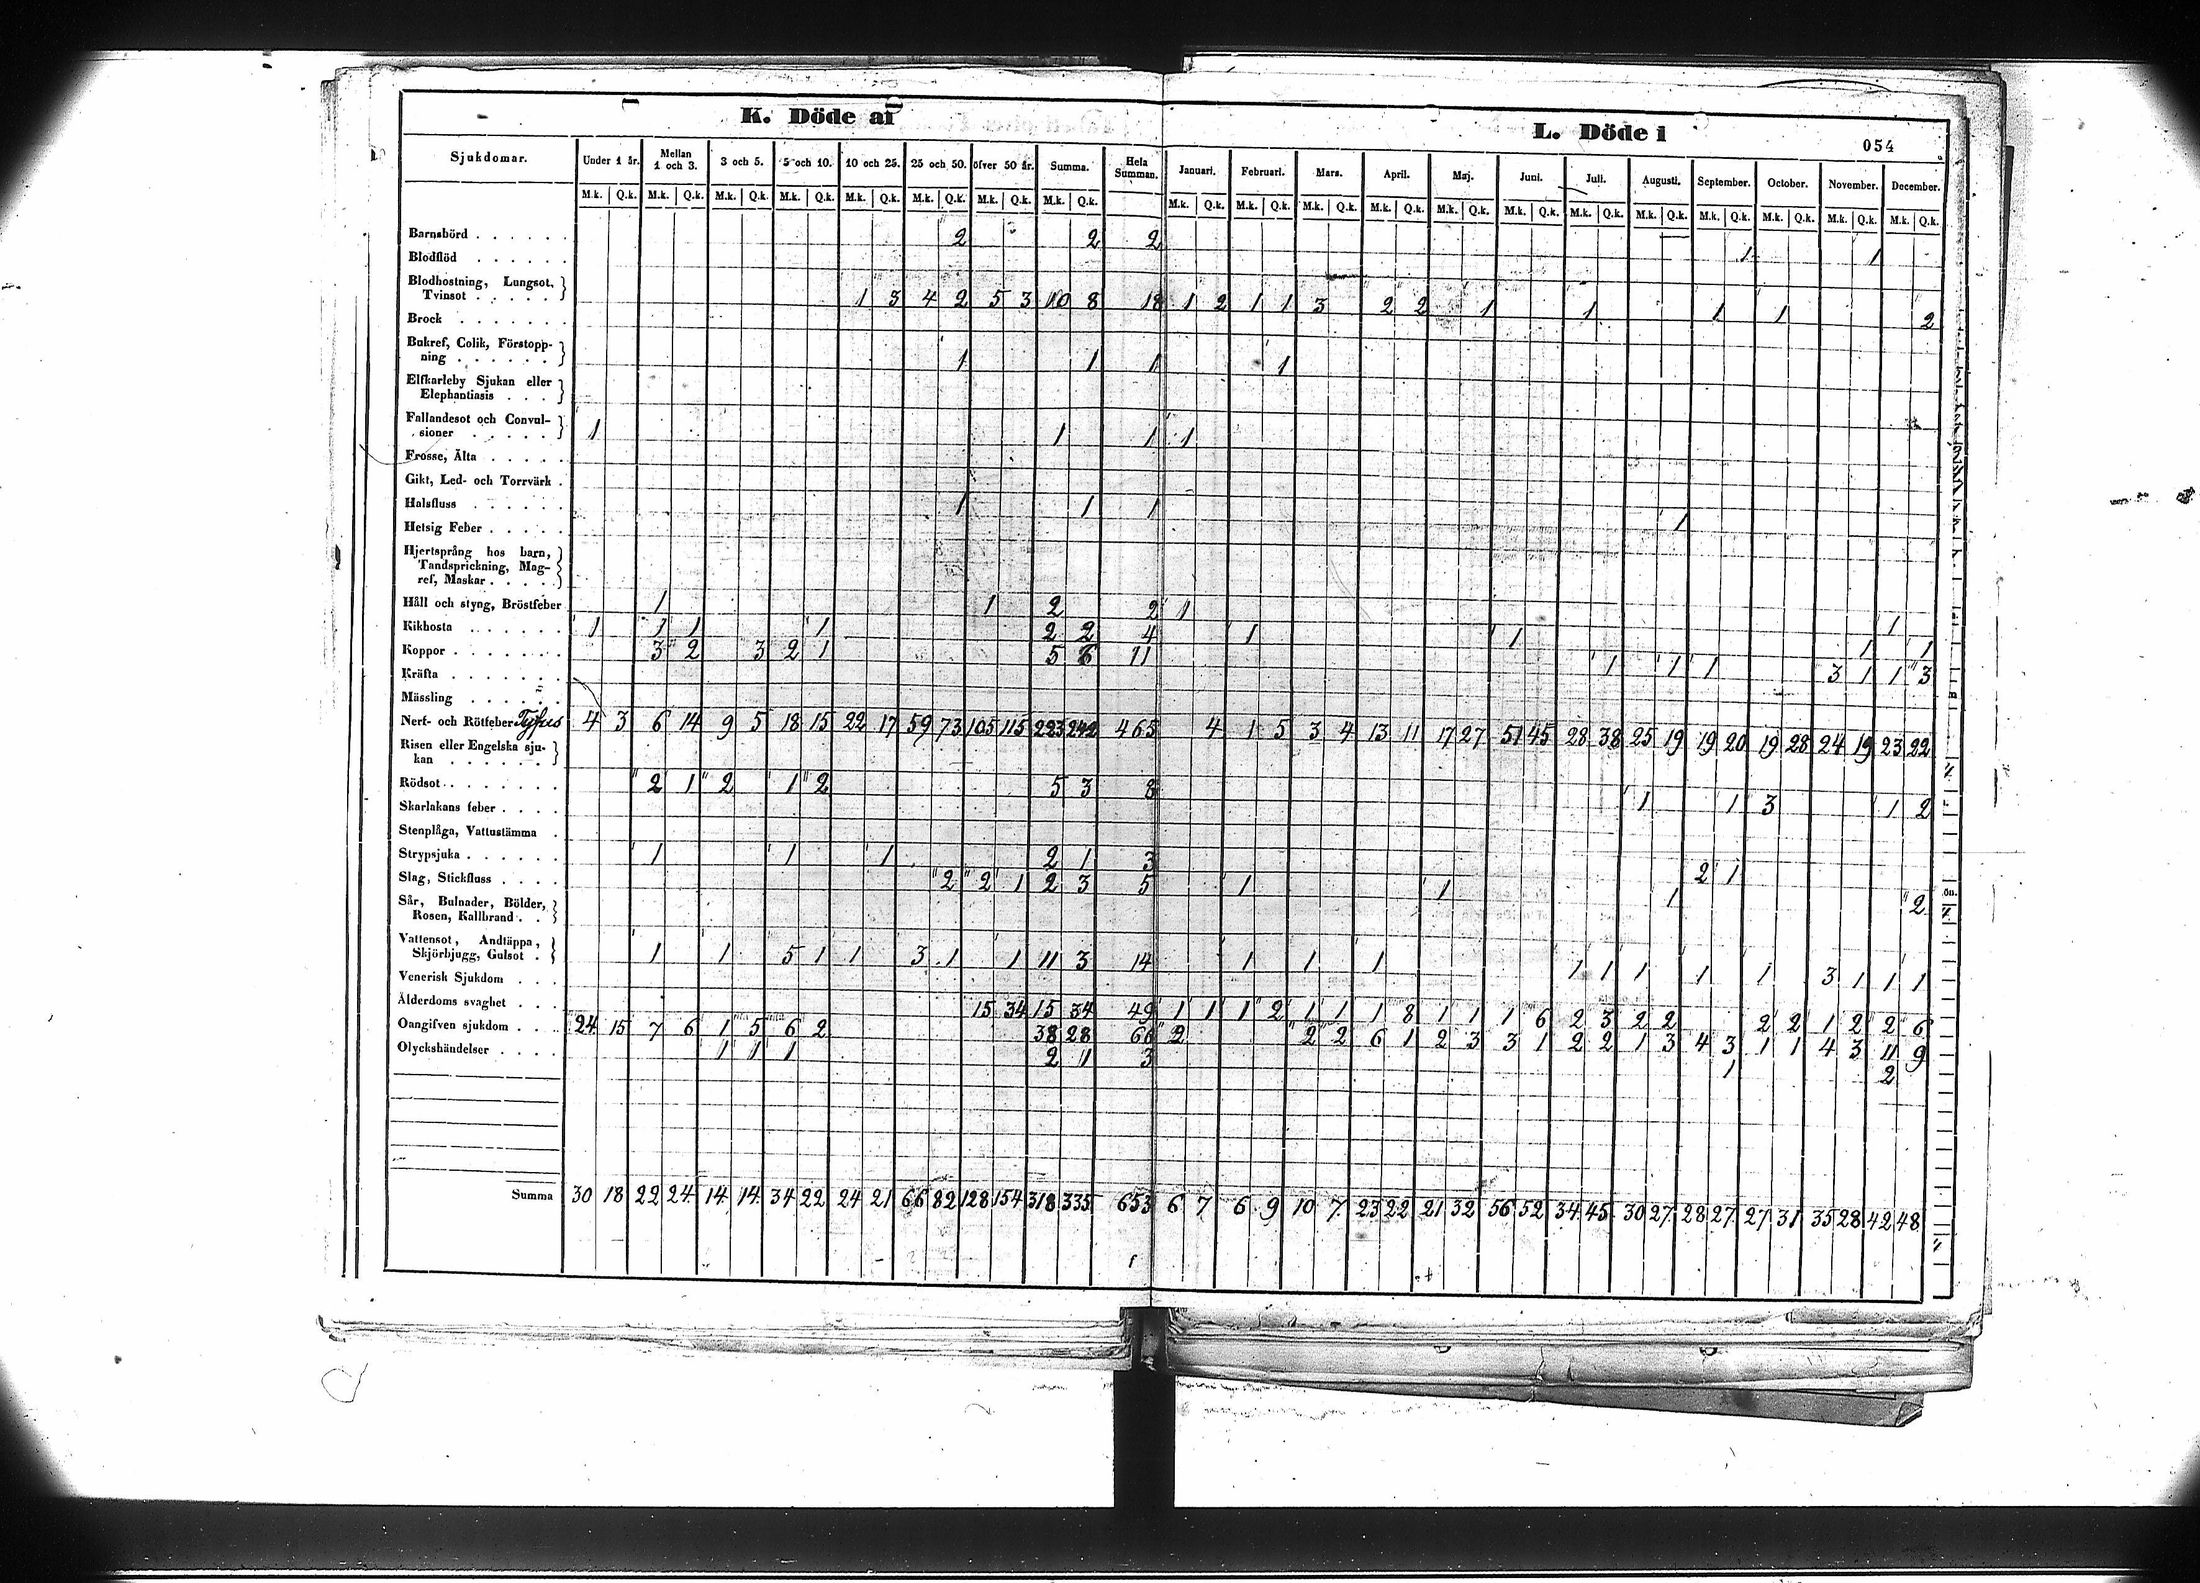 K. Döde af
L. Döde i
054
Sjukdomar. Under 1 år. Mellan 1 och 3. 3 och 5. 5 och 10. 10 och 25. 25 och 50. öfver 50 år. Summa. Hela Summan. Januari. Februari. Mars. April. Maj. Juni. Juli. Augusti. September. October. November. December.
M.k. Q.k. M.k. Q.k. M.k. Q.k. M.k. Q.k. M.k. Q.k. M.k. Q.k. M.k. Q.k. M.k. Q.k. M.k. Q.k. M.k. Q.k. M.k. Q.k. M.k. Q.k. M.k. Q.k. M.k. Q.k. M.k. Q.k. M.k. Q.k. M.k. Q.k. M.k. Q.k. M.k. Q.k. M.k. Q.k.
Barnsbörd 2 2 2 1 1
Blodflöd
Blodhostning, Lungsot,
Tvinsot 1 3 4 2 5 3 10 8 18 1 2 1 1 3 2 2 1 1 1 1 2
Brock
Bukref, Colik, Förstopp-
ning 1 1 1 1
Elfkarleby Sjukan eller
Elephantiasis
Fallandesot och Convul-
sioner 1 1 1 1
Frosse, Älta
Gikt, Led- och Torrvärk
Halsfluss 1 1 1 1
Hetsig Feber
Hjertsprång hos barn,
Tandsprickning, Mag-
ref, Maskar
Håll och styng, Bröstfeber 1 1 2 2 1 1
Kikhosta 1 1 1 1 2 2 4 1 1 1 1
Koppor 3 2 3 2 1 5 6 11 1 1 1 3 1 1 3
Kräfta
Mässling
Nerf- och Rötfeber Tyfus 4 3 6 14 9 5 18 15 22 17 59 73 105 115 223 242 465 4 1 5 3 4 13 11 17 27 51 45 28 38 25 19 19 20 19 28 24 19 23 22
Risen eller Engelska sju-
kan
Rödsot 2 1 2 1 2 5 3 8 1 1 3 1 2
Skarlakans feber
Stenplåga, Vattustämma
Strypsjuka 1 1 1 2 1 3 2 1
Slag, Stickfluss 2 2 1 2 3 5 1 1 1 2
Sår, Bulnader, Bölder,
Rosen, Kallbrand
Vattensot, Andtäppa,
Skjörbjugg, Gulsot 1 1 5 1 1 3 1 1 11 3 14 1 1 1 1 1 1 1 1 3 1 1 1
Venerisk Sjukdom
Ålderdoms svaghet 15 34 15 34 49 1 1 1 2 1 1 1 8 1 1 1 6 2 3 2 2 2 2 1 2 2 6
Oangifven sjukdom 24 15 7 6 1 5 6 2 38 28 66 2 2 2 6 1 2 3 3 1 2 2 1 3 4 3 1 1 4 3 11 9
Olyckshändelser 1 1 1 2 1 3 1 2
Summa 30 18 22 24 14 14 34 22 24 21 66 82 128 154 318 335 653 6 7 6 9 10 7 23 22 21 32 56 52 34 45 30 27 28 27 27 31 35 28 42 48